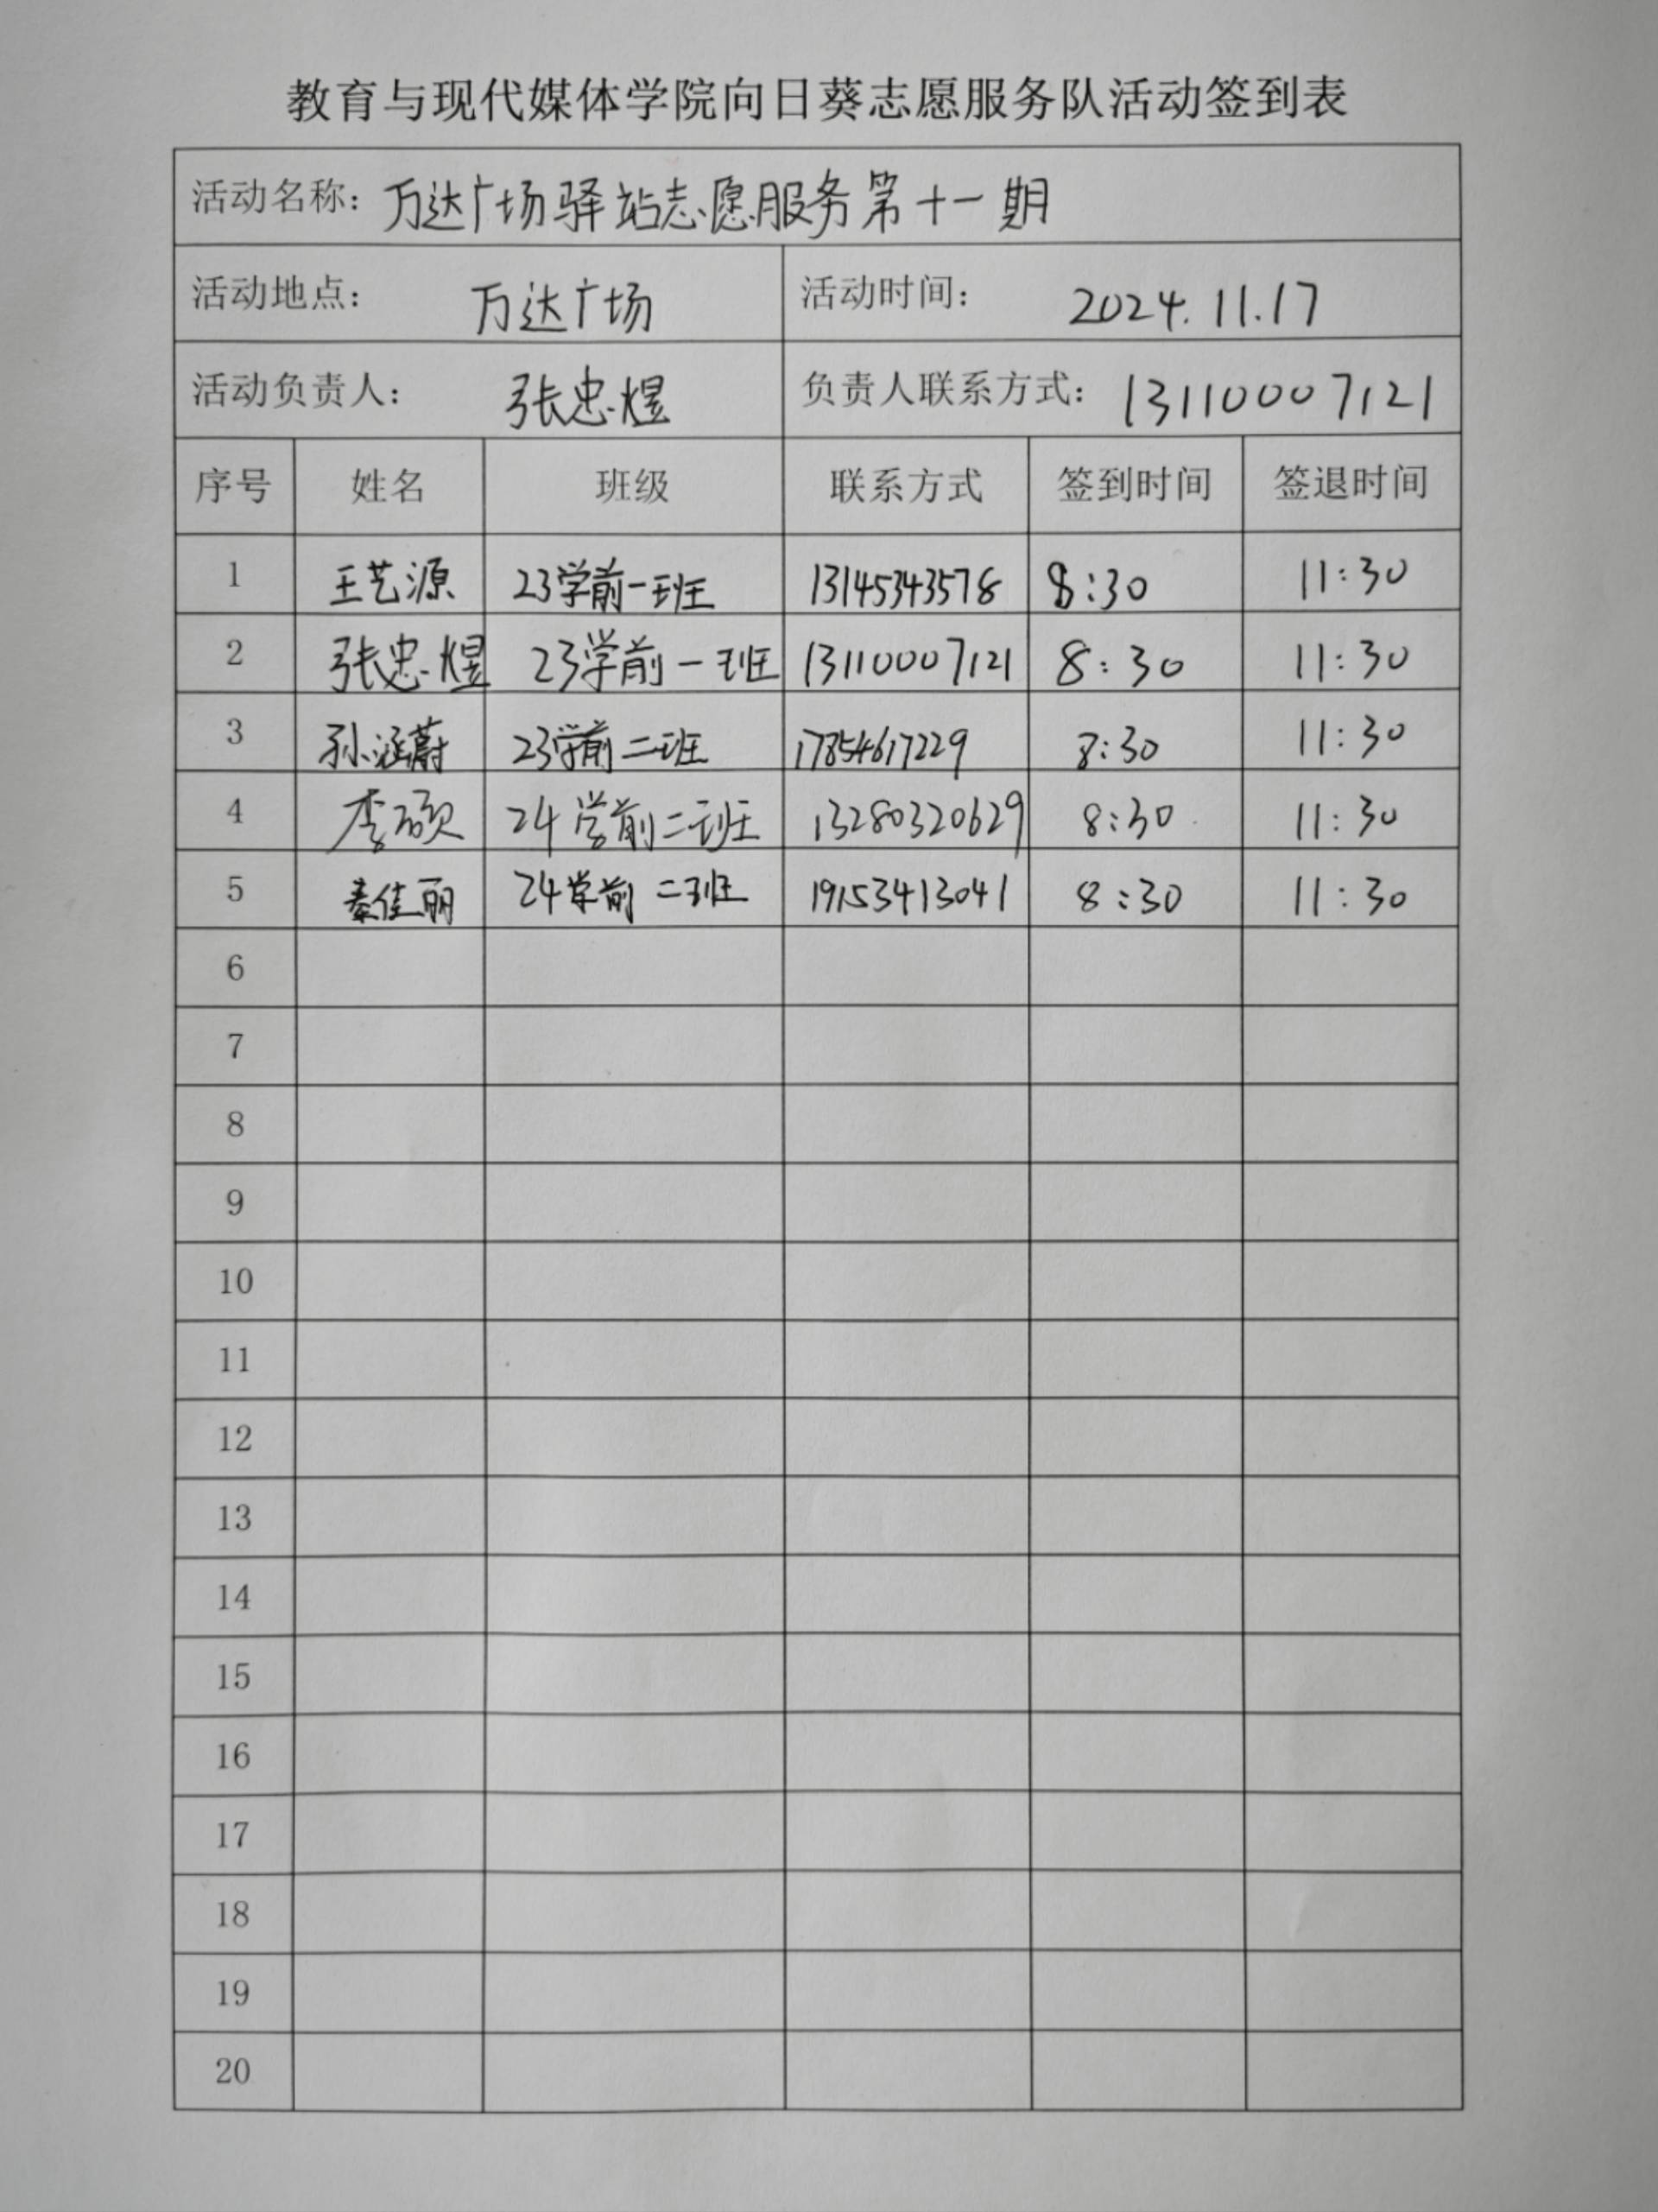 教育与现代媒体学院向日葵志愿服务队活动签到表
活动名称：万达广场驿站志愿服务第十一期
活动地点： 万达广场 活动时间： 2024.11.17
活动负责人： 张忠煜 负责人联系方式：13110007121
序号 姓名 班级 联系方式 签到时间 签退时间
1 王艺源 23学前一班 13145343578 8:30 11:30
2 张忠煜 23学前一班 13110007121 8:30 11:30
3 孙涵蔚 23学前二班 17854617229 8:30 11:30
4 李硕 24学前二班 13280320629 8:30 11:30
5 秦佳丽 24学前二班 19153413041 8:30 11:30
6
7
8
9
10
11
12
13
14
15
16
17
18
19
20